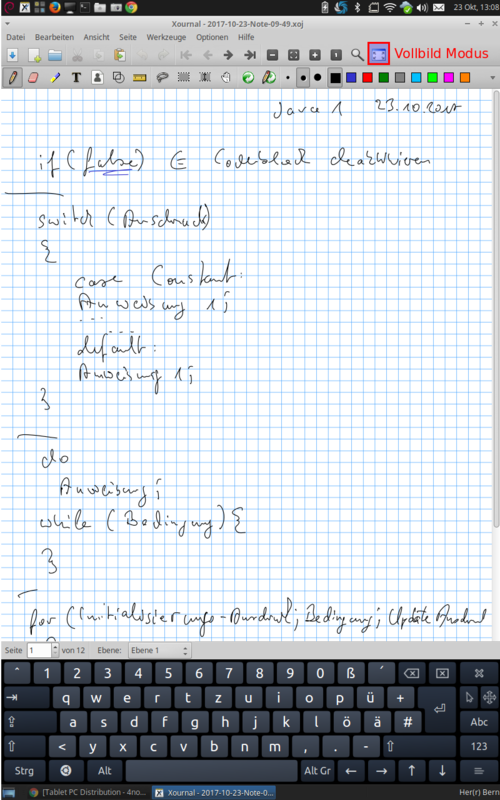 23 Okt, 13:08
Xournal - 2017-10-23-Note-09-49.xoj
Datei Bearbeiten Ansicht Seite Werkzeuge Optionen Hilfe
Vollbild Modus
Java 1 23.10.2017
if (false) ∈ Codeblock deaktivieren
switch (Ausdruck)
{
case Constant:
Anweisung 1;
... ...
default:
Anweisung 1;
}
do
Anweisung;
while (Bedingung) {
}
for (Initialisierungs-Ausdruck; Bedingung; Update Ausdruck
Seite 1 von 12 Ebene: Ebene 1
^ 1 2 3 4 5 6 7 8 9 0 ß ´
q w e r t z u i o p ü +
a s d f g h j k l ö ä # Abc
< y x c v b n m , . - 123
Strg Alt Alt Gr
[Tablet PC Distribution - 4no... Xournal - 2017-10-23-Note-0... Her(r) Bern